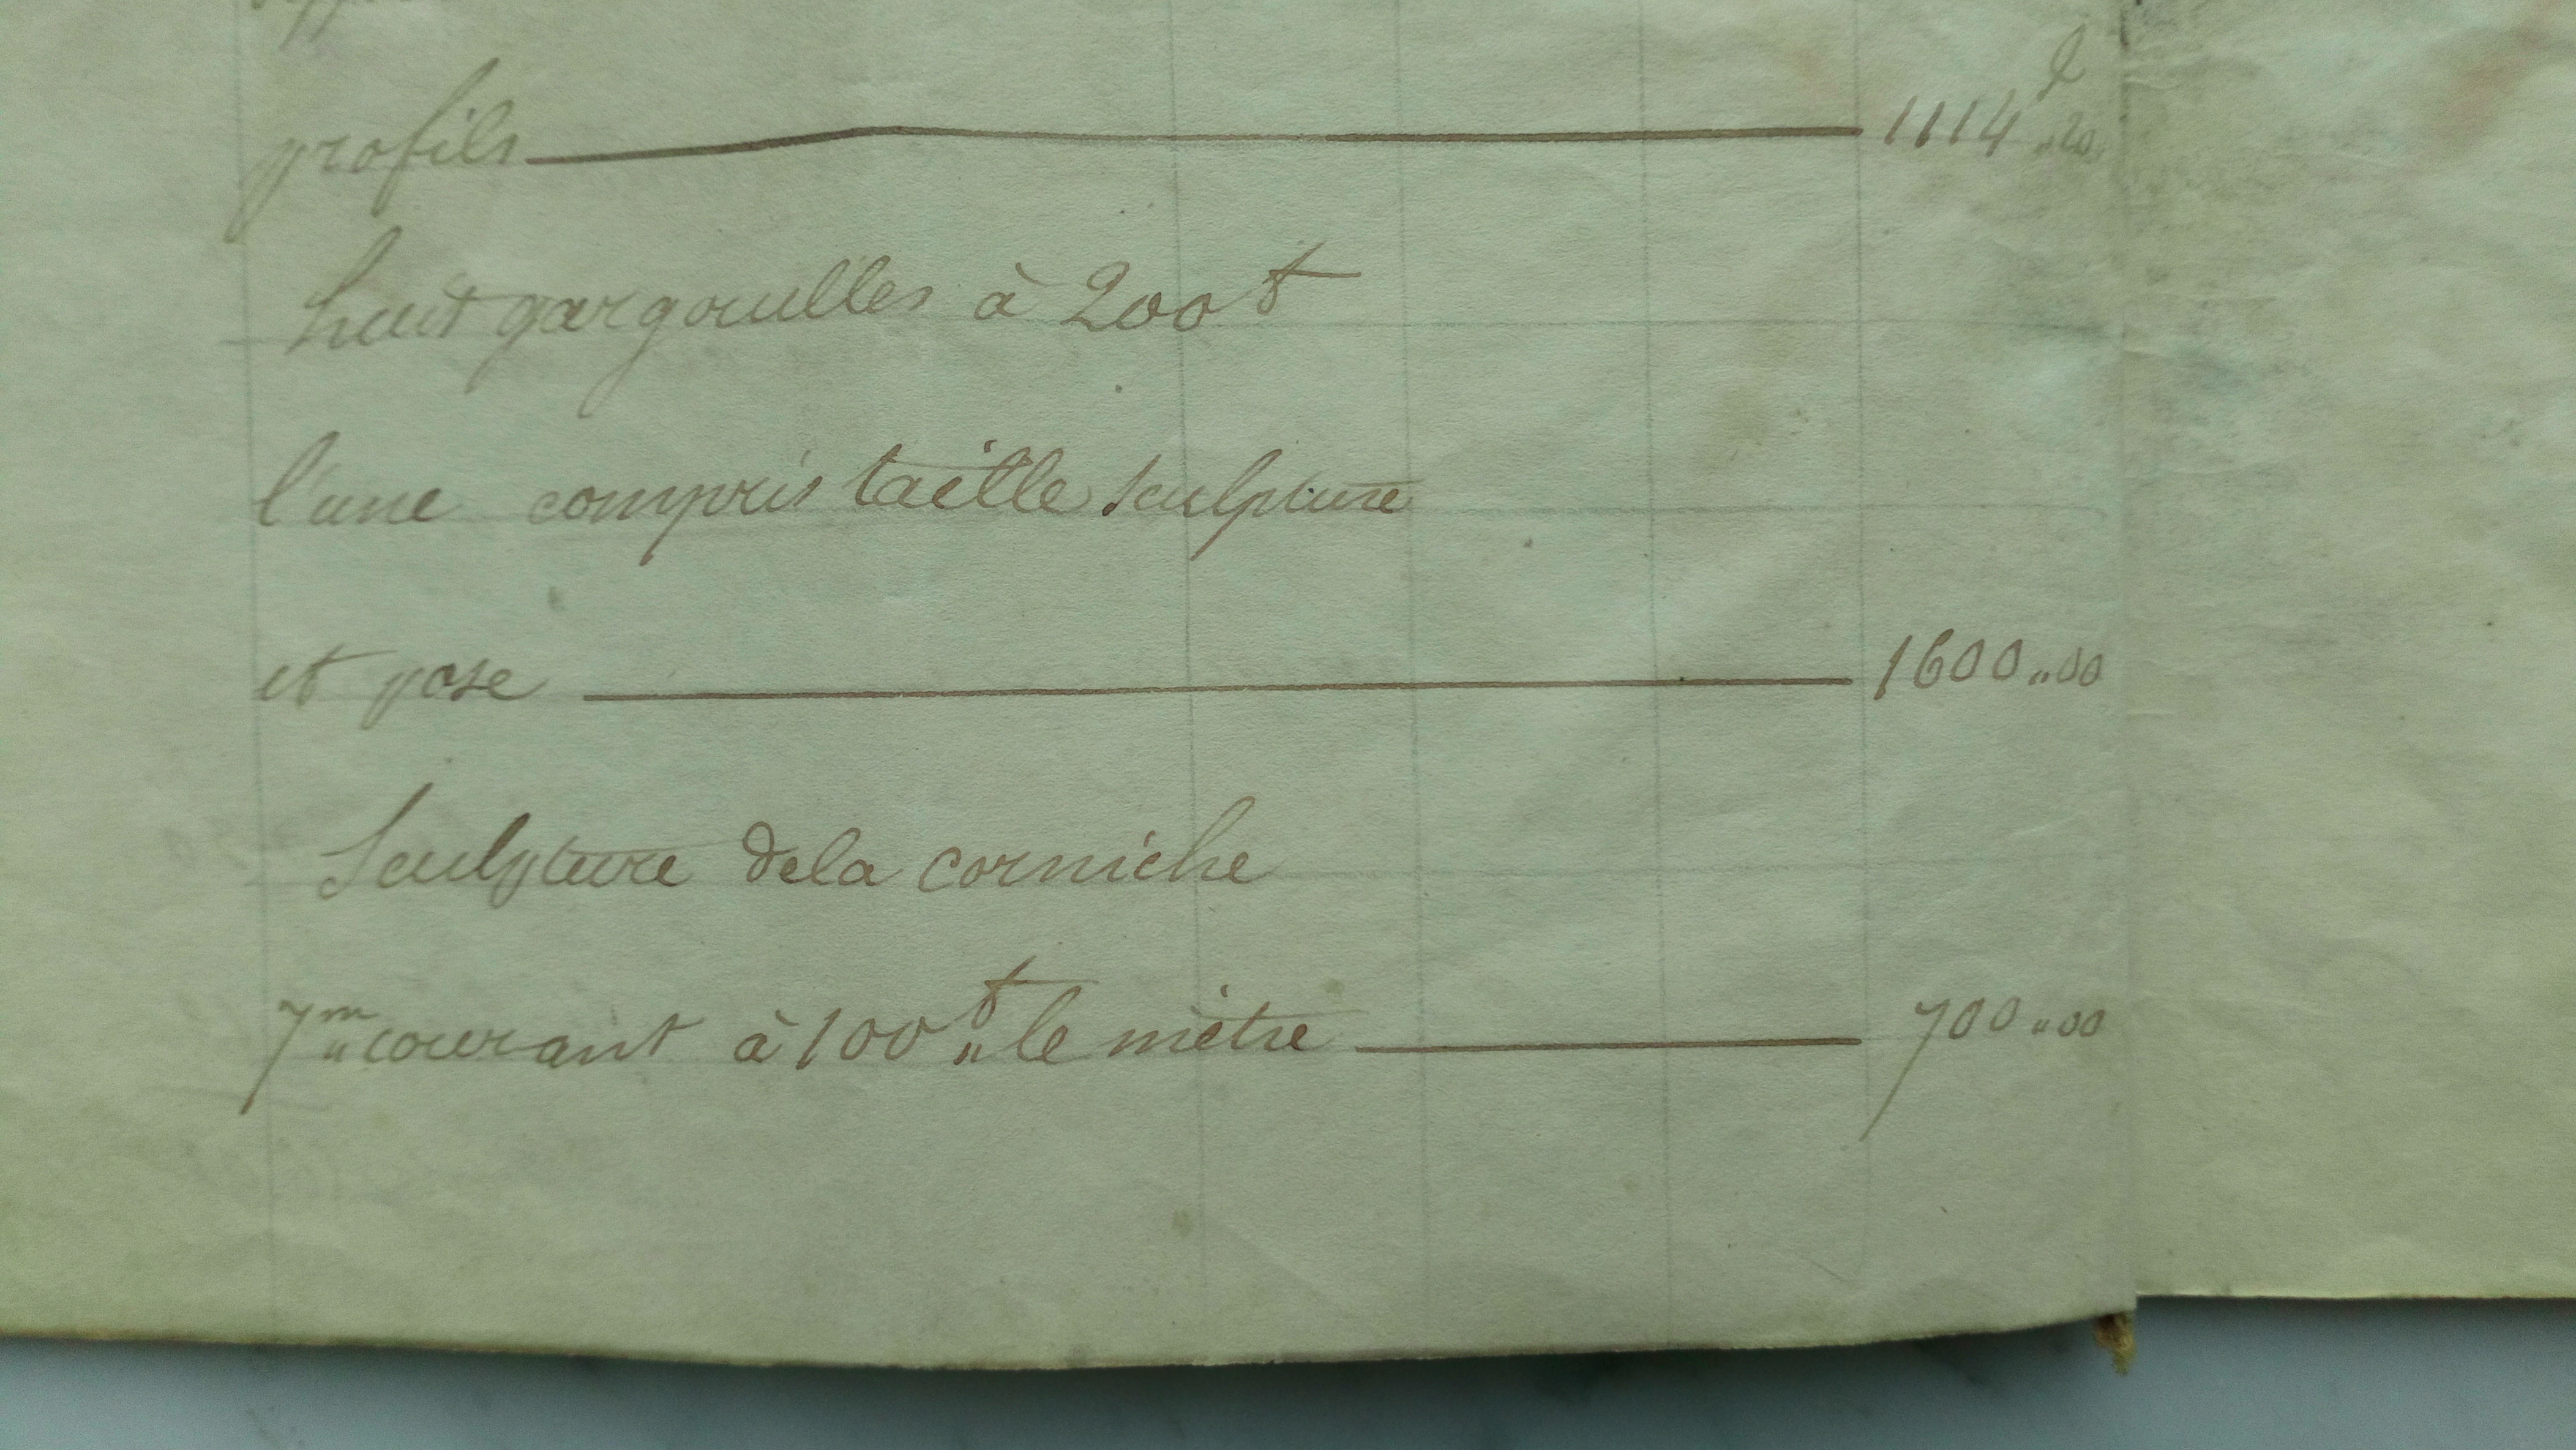 profils 1114 „ 20
huit gargouilles à 200 f
l'une compris taille sculpture
et pose 1600 „ 00
Sculpture dela corniche
7 m „ courant à 100 f „ le mètre 700 „ 00